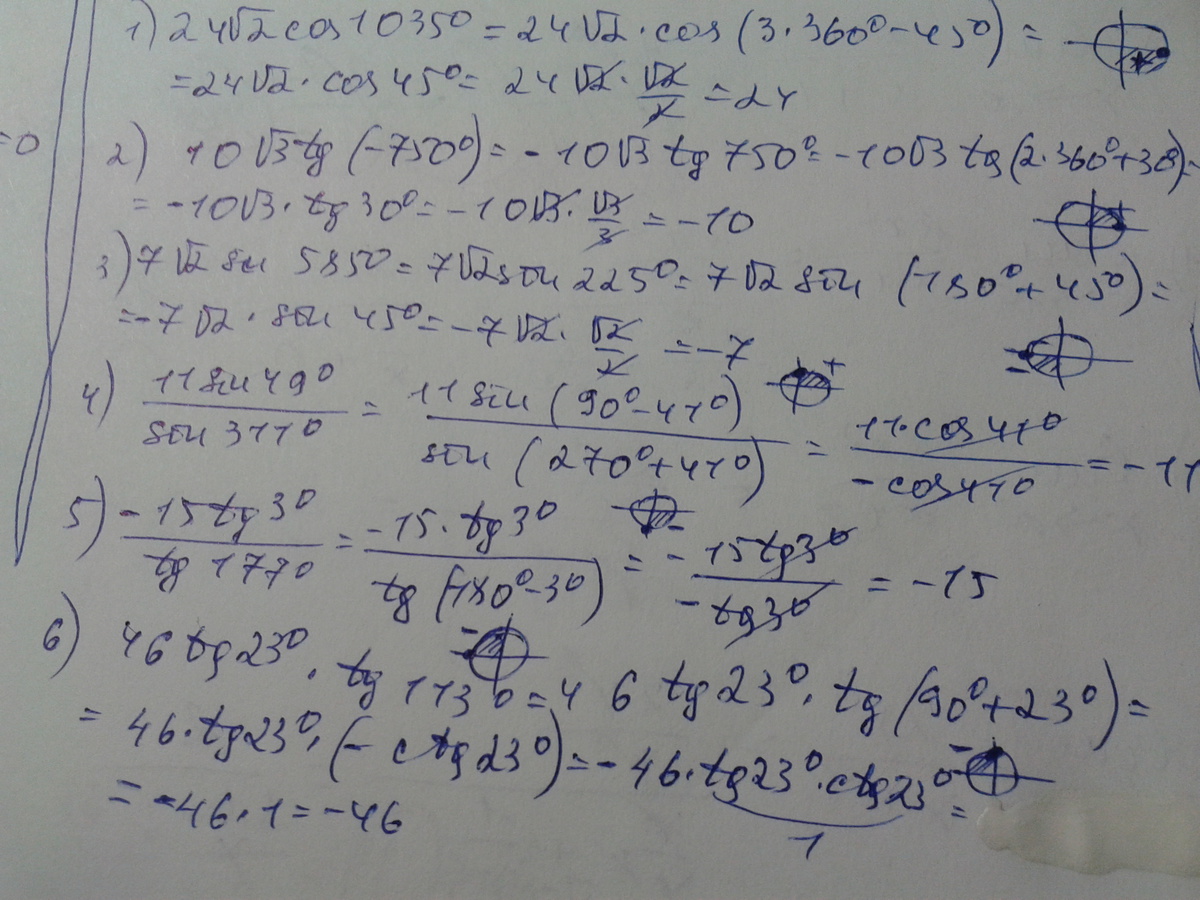 1) 24√2 cos 1035° = 24√2 · cos (3·360° − 45°) =
= 24√2 · cos 45° = 24√2 · √2/2 = 24
= 0
2) 10√3 tg (−750°) = −10√3 tg 750° = −10√3 tg (2·360° + 30°) =
= −10√3 · tg 30° = −10√3 · √3/3 = −10
3) 7√2 sin 585° = 7√2 sin 225° = 7√2 sin (180° + 45°) =
= −7√2 · sin 45° = −7√2 · √2/2 = −7
4) 11 sin 49° / sin 311° = 11 sin (90° − 41°) / sin (270° + 41°) = 11·cos 41° / −cos 41° = −11
5) −15 tg 3° / tg 177° = −15 · tg 3° / tg (180° − 3°) = −15 tg 3° / −tg 3° = −15
6) 46 tg 23° · tg 113° = 46 tg 23° · tg (90° + 23°) =
= 46 · tg 23° · (− ctg 23°) = −46 · tg 23° · ctg 23° =
1
= −46 · 1 = −46